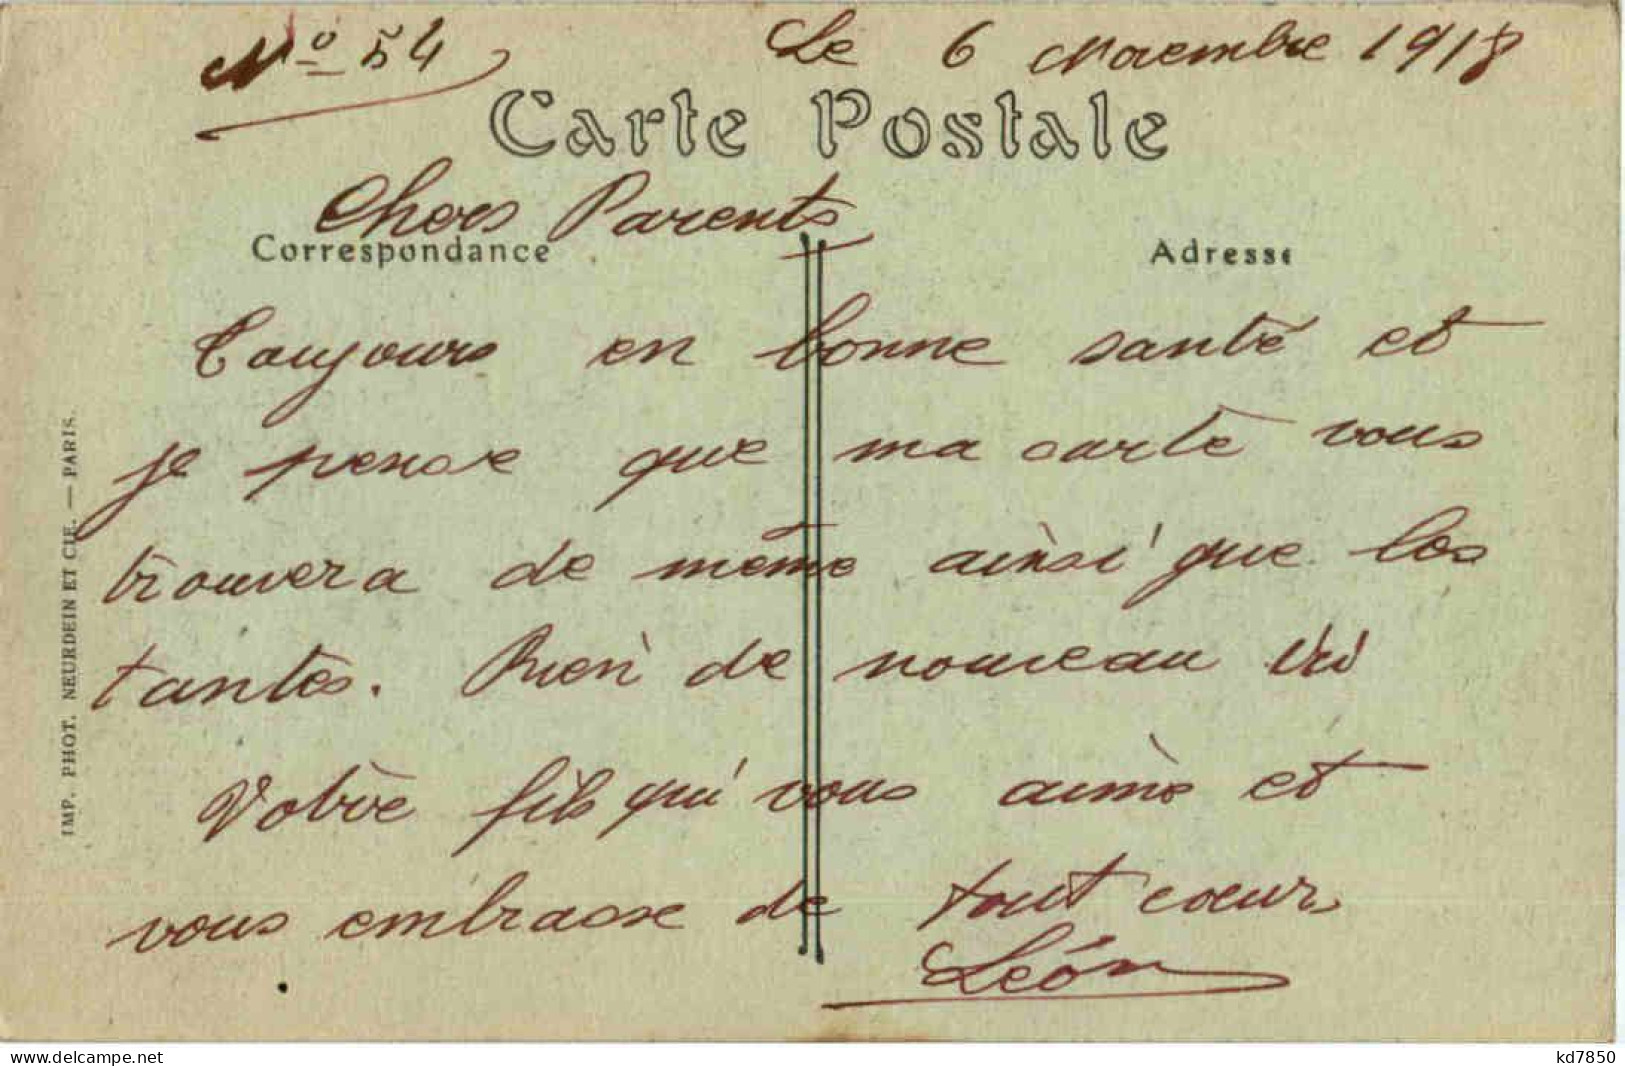 No 54
Le 6 Novembre 1918
Carte Postale
Chers Parents
Correspondance
Adresse
Toujours en bonne santé et
je pense que ma carte vous
trouvera de même ainsi que les
tantes. Rien de nouveau ici
Votre fils qui vous aime et
vous embrasse de tout coeur
Léon
IMP. PHOT. NEURDEIN ET CIE. — PARIS.
www.delcampe.net
kd7850